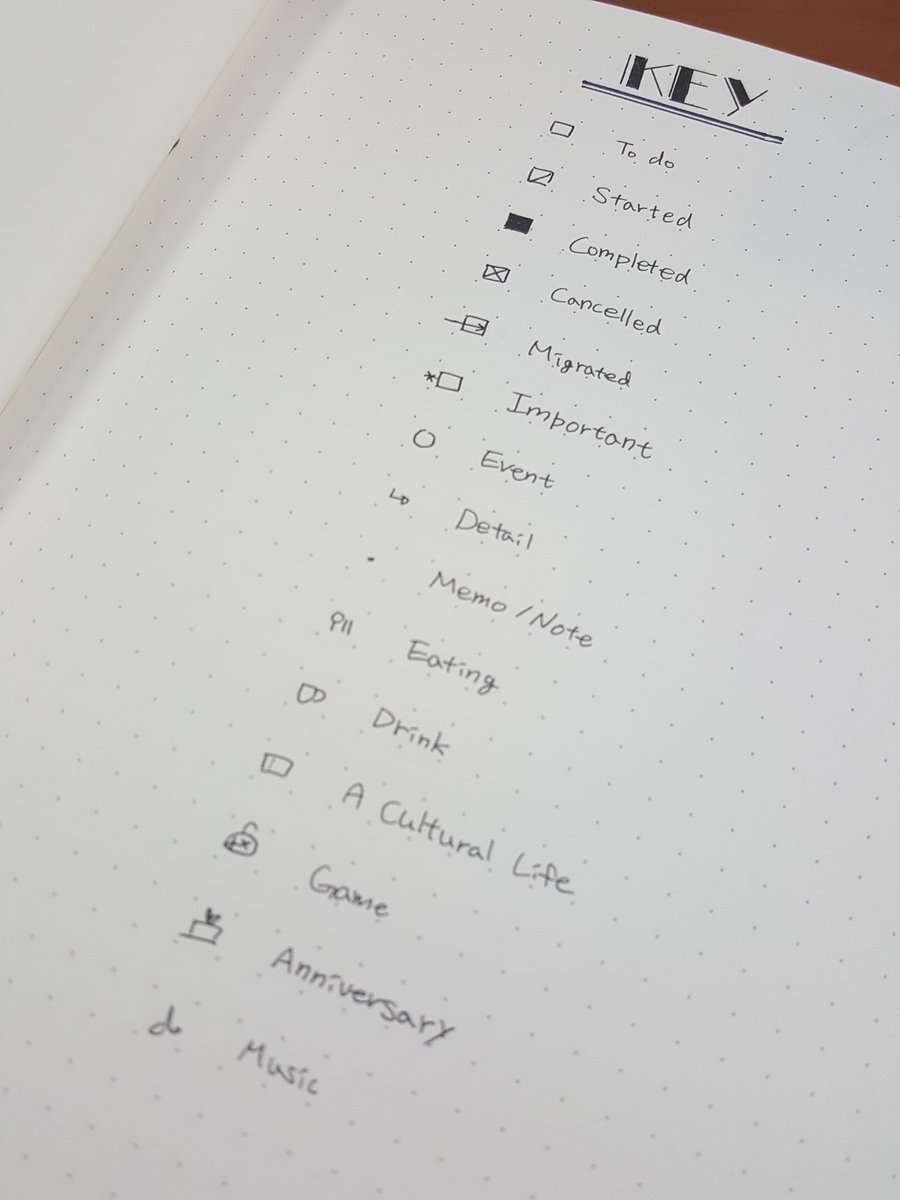 KEY
To do
Started
Completed
Cancelled
Migrated
Important
Event
Detail
Memo / Note
Eating
Drink
A Cultural Life
Game
Anniversary
Music